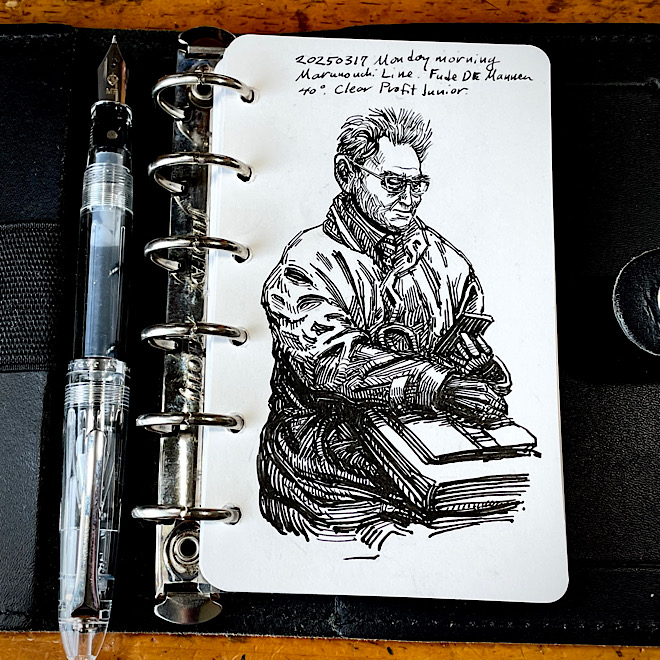 20250317 Monday morning
Marunouchi Line. Fude DE Mannen
40°. Clear Profit Junior.